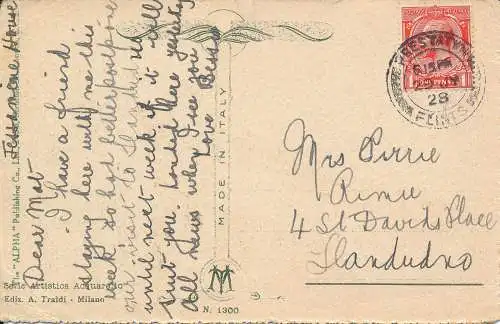 Jessamine House
Dear Mat
I have a friend
staying here with me this
week so had better postpone
our visit to Llandudno
until next week if it will
suit you. Landed here yesterday
all news when I see you
Love Bessie
The "ALPHA" Publishing Co., Ltd.
Serie Artistica Acquarello
Ediz. A. Traldi - Milano
MADE IN ITALY
N. 1300
PRESTATYN
28
FLINTS
Mrs Pirrie
4 St Davids Place
Llandudno